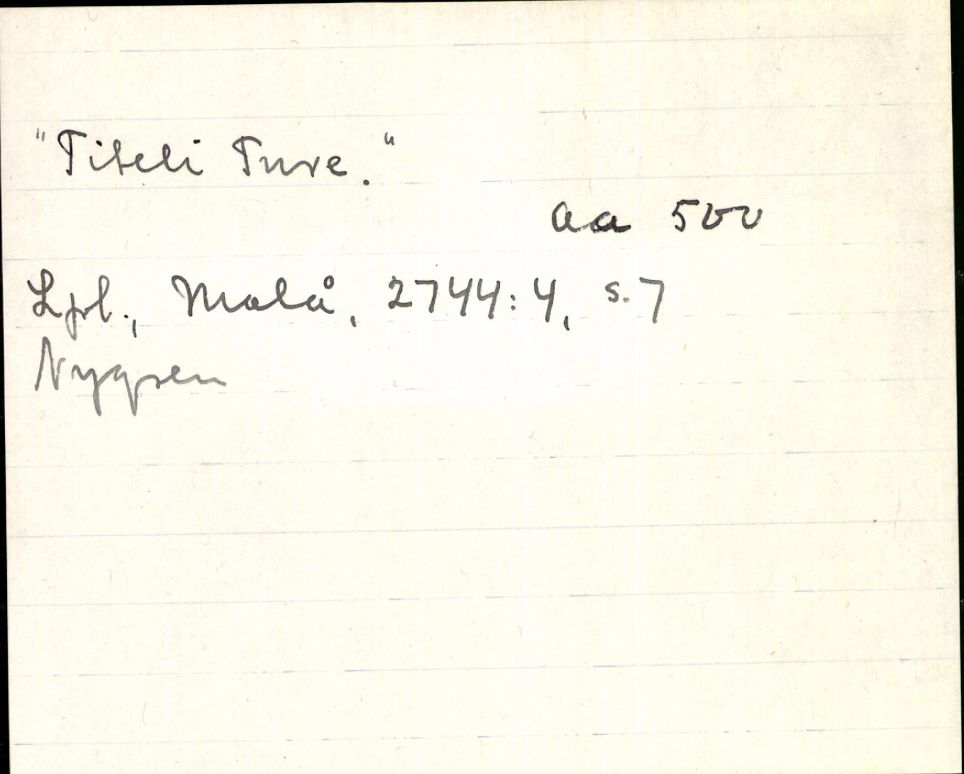 "Titeli Ture."
aa 500
Lpl., Malå, 2744:4, s.7